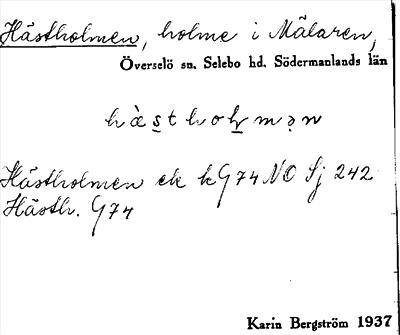 Hästholmen, holme i Mälaren,
Överselö sn. Selebo hd. Södermanlands län
hä̀s̲tholmə̣n
Hästholmen ek kG74 NO Sj 242
Hästh. G74
Karin Bergström 1937